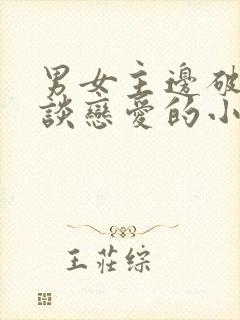 男女主邊破
談戀愛的小
王莊綜